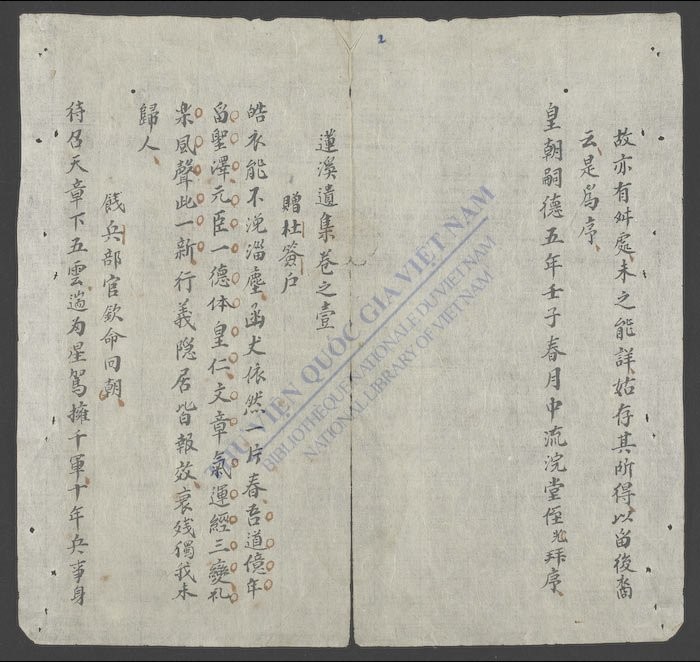 2
故亦有舛處未之能詳姑存其所得以畱後裔
云是爲序
皇朝嗣德五年壬子春月中流浣堂侄拜序
蓮溪遺集卷之壹
贈杜簽户
皓衣能不浼淄塵函丈依然一片春吾道億年
畱聖澤元臣一德体皇仁文章氣運經三變礼
楽風聲此一新行義隐居皆報效衰残獨我未
歸人
餞兵部官欽命囘朝
待召天章下五雲遄为星駕擁千軍十年兵事身
THƯ VIỆN QUỐC GIA VIỆT NAM
BIBLIOTHÈQUE NATIONALE DU VIETNAM
NATIONAL LIBRARY OF VIETNAM